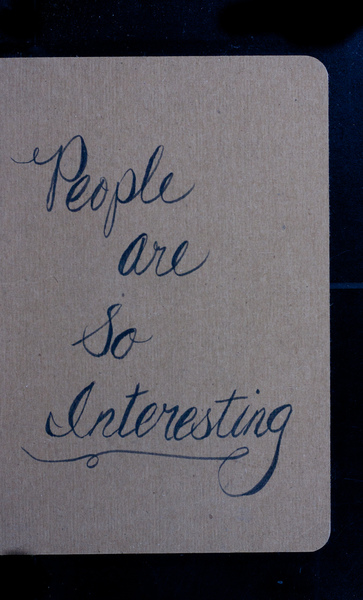 People
are
So
Interesting